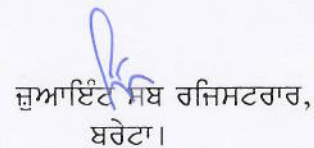 ਜੁਆਇੰਟ ਸਬ ਰਜਿਸਟਰਾਰ,
ਬਰੇਟਾ।